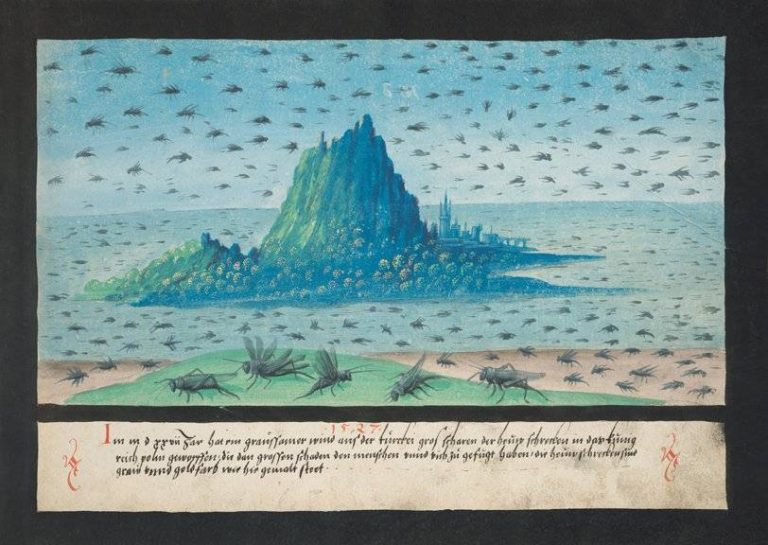 1527
Im m d xxvii Jar hat ein graussamer wind aus der türckei gros scharen der heuw schrecken in daz küng
reich poln geworffen, die dan grossen schaden den menschen unnd vich zu gefugt haben, die heuwschrecken sind
graw unnd gold farb wie hie gemalt stet.